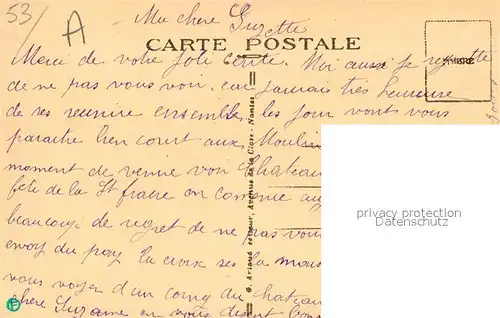 53/
A
Ma chere Suzette
CARTE POSTALE
TIMBRE
Merci de votre joli carte. Moi aussi je regrette
de ne pas vous voir, car jamais très heureuse
de se reunire ensemble. les jour vont vous
paraitre bien court aux Moulin
moment de venire voir Chateau
fete de la St fiacre en
beaucoup de regret de ne pas vous
envoy du pay la croix
vous voyez d'un coing du Chateau
chere Suzanne en vous
G. Artaud éditeur, Avenue de la Close - Nantes
privacy protection
Datenschutz